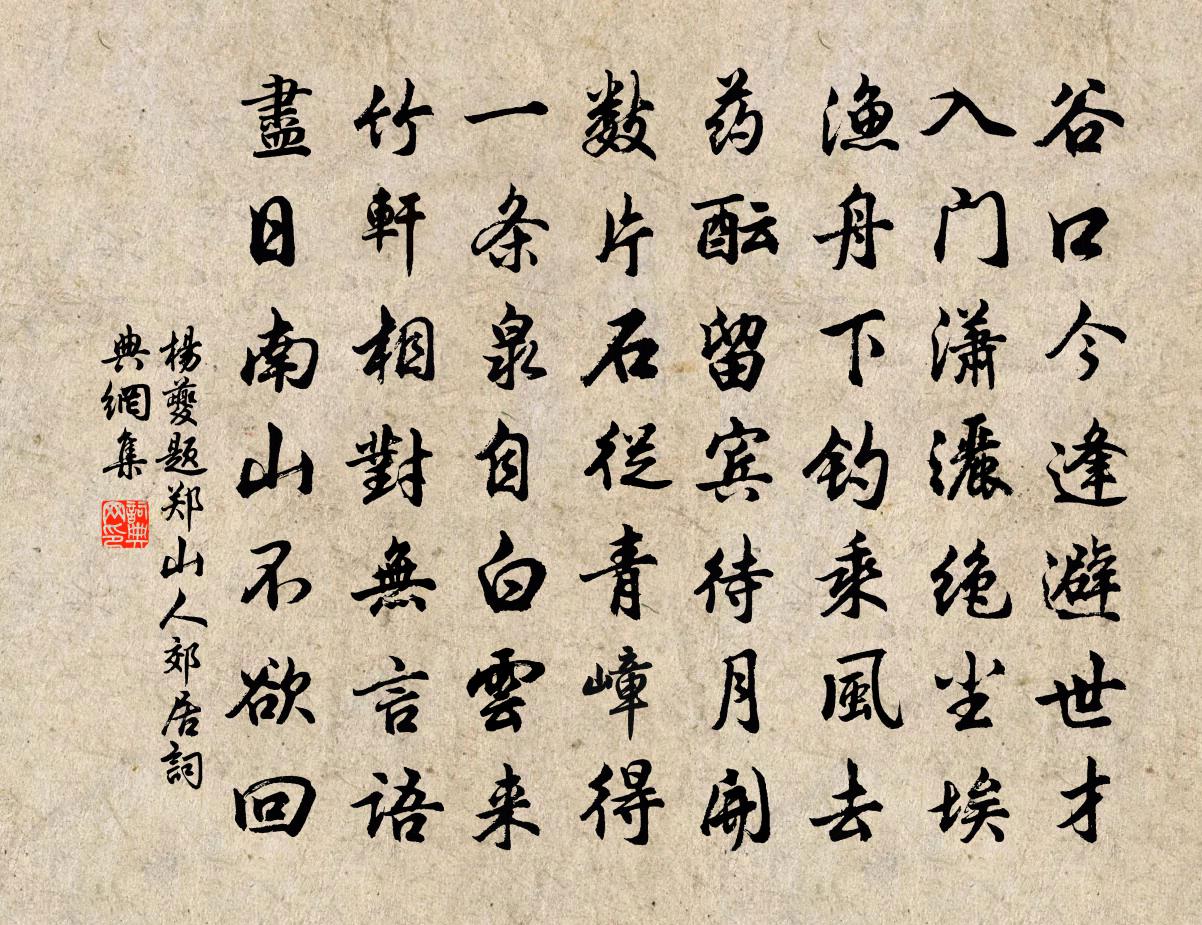 谷口今逢避世才
入门潇灑绝尘埃
渔舟下钓乘風去
药酝留宾待月開
数片石從青嶂得
一条泉自白雲来
竹軒相對無言語
盡日南山不欲回
楊夔题郑山人郊居詞
典網集
詞典
网印